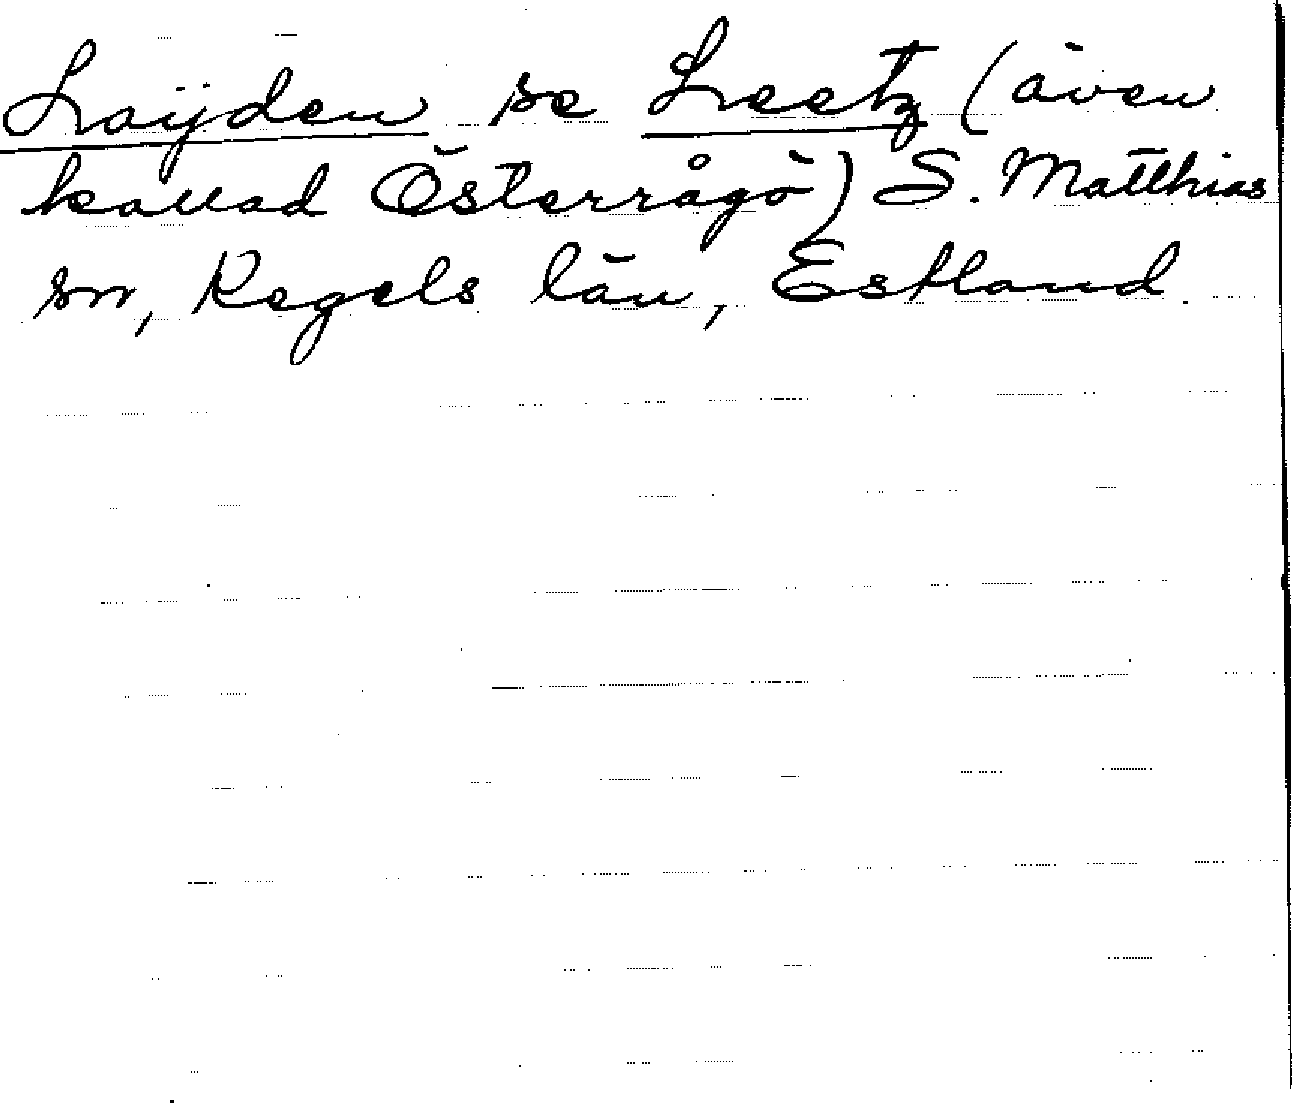 Laÿden se Leetz (även
kallad Österrågö) S. Matthias
sn, Regels län, Estland.